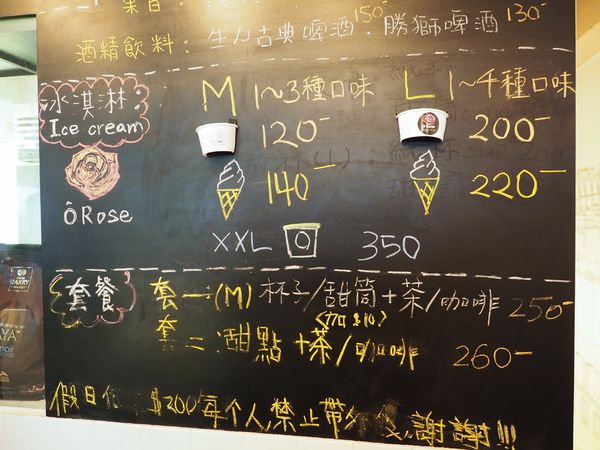 酒精飲料: 生力古典啤酒150 . 勝獅啤酒130-
冰淇淋:
Ice cream
M 1~3種口味
L 1~4種口味
120-
200-
140-
220-
ôRose
XXL 350
套餐
套一:(M) 杯子/甜筒+茶/咖啡 250-
套二:甜點+茶/咖啡 260-
假日 $200每个人,禁止帶 謝謝!!!